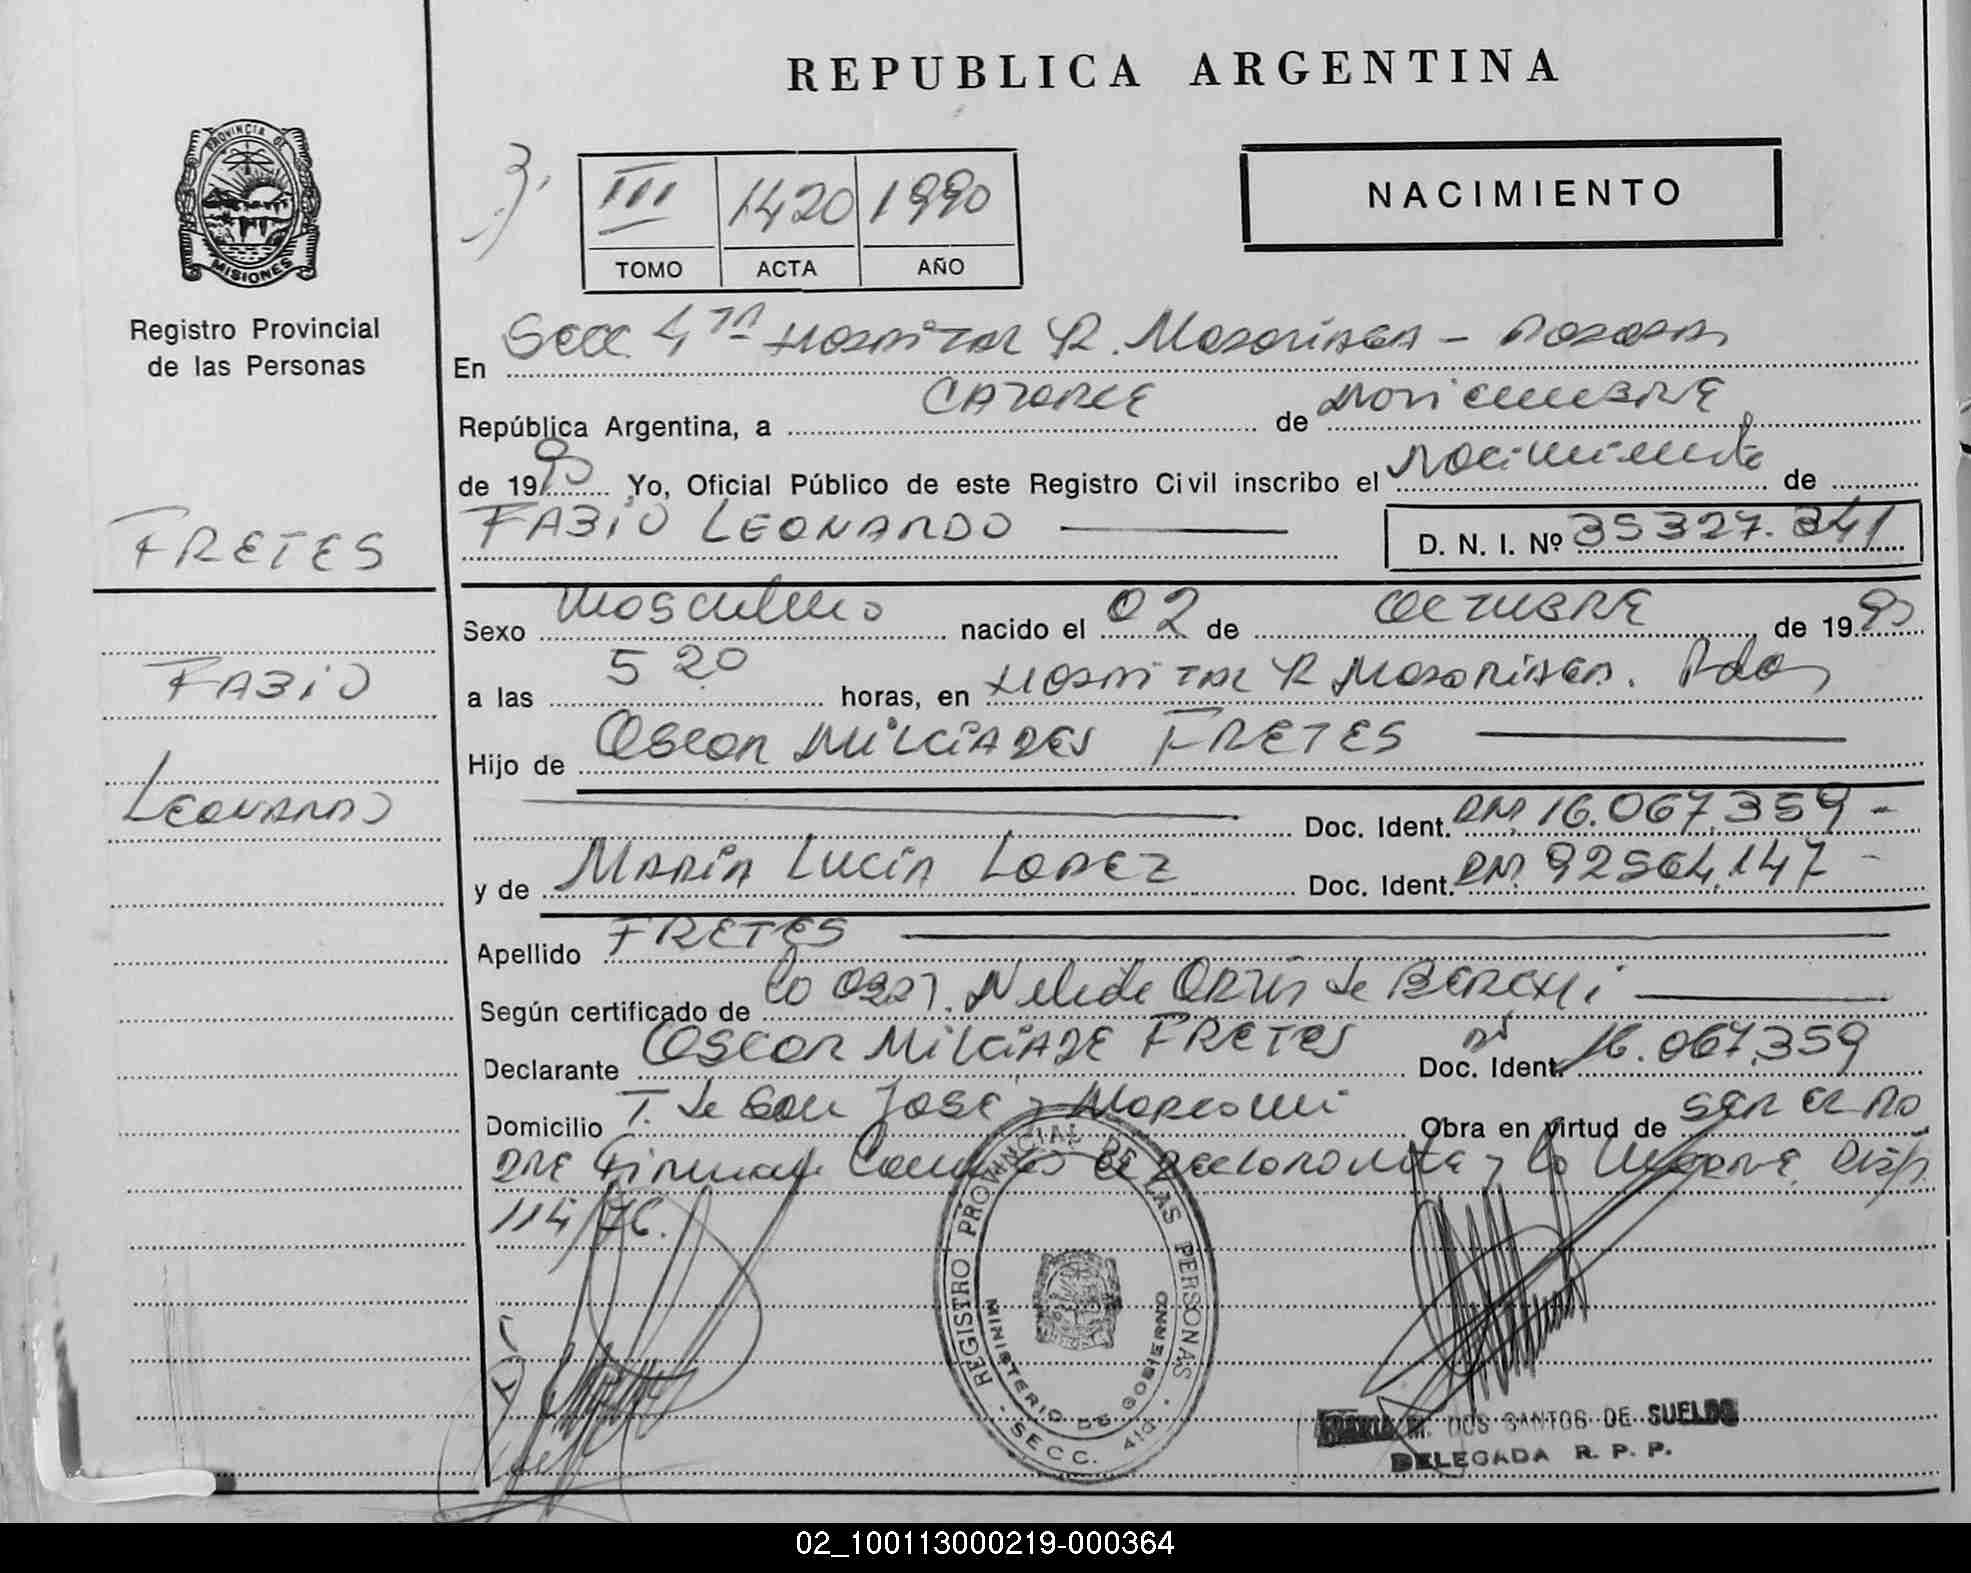 REPUBLICA ARGENTINA
PROVINCIA DE
MISIONES
Registro Provincial
de las Personas
3.
III 1420 1990
TOMO ACTA AÑO
NACIMIENTO
En Secc. 4ta Hospital R. Madariaga - Posadas
República Argentina, a CATORCE de Noviembre
de 1990 Yo, Oficial Público de este Registro Civil inscribo el Nacimiento de
FABIO LEONARDO D. N. I. Nº 35327.341
FRETES
FABIO
LEONARDO
Sexo Masculino nacido el 02 de OCTUBRE de 1990
a las 5 20 horas, en Hospital R Madariaga. Pdas
Hijo de Oscar Milciades FRETES
Doc. Ident. DNI. 16.067.359 -
y de Maria Lucia Lopez Doc. Ident. DNI. 92564.147 -
Apellido FRETES
Según certificado de la Obst. Nelida Ortiz de
Declarante Oscar Milciade FRETES Doc. Ident. 16.067.359
Domicilio T. de San José y Marconi Obra en virtud de ser el Pa
dre Firman Conmigo el declarante y la Madre. Disp.
114/76.
REGISTRO PROVINCIAL DE LAS PERSONAS
MINISTERIO DE GOBIERNO
SECC. 4ta.
MARIA M. DOS SANTOS DE SUELDO
DELEGADA R. P. P.
02_100113000219-000364